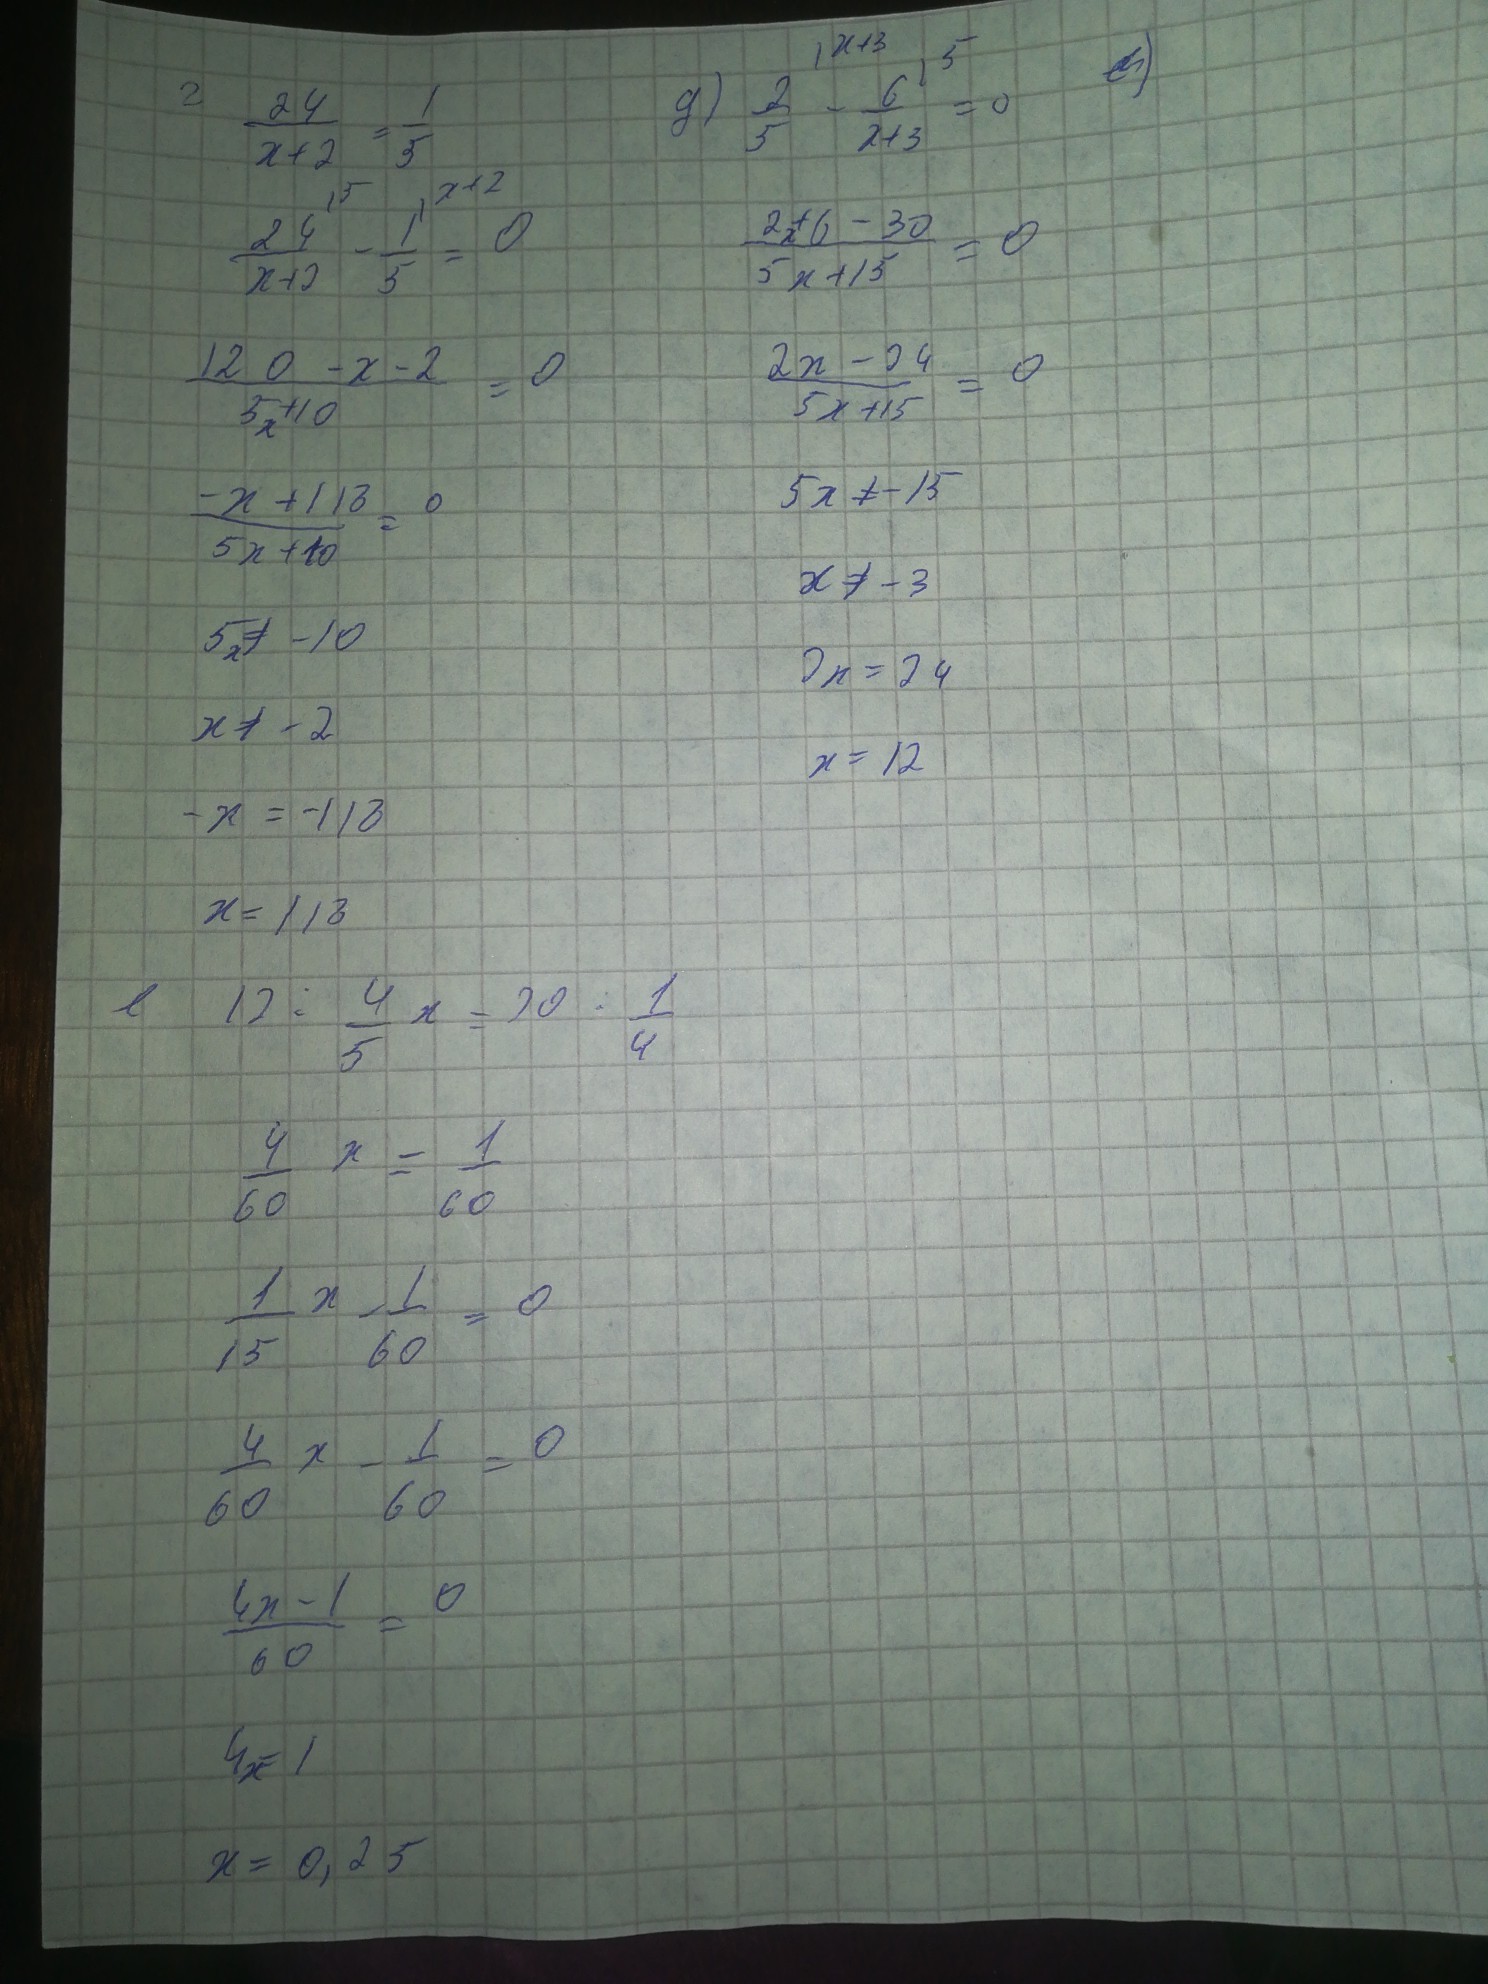 г 24/(x+2) = 1/5
24/(x+2) |5 - 1/5 |x+2 = 0
(120 -x-2)/(5x+10) = 0
(-x+118)/(5x+10) = 0
5x≠ -10
x≠ -2
-x = -118
x = 118
д) 2/5 |x+3 - 6/(x+3) |5 = 0
(2x+6-30)/(5x+15) = 0
(2x-24)/(5x+15) = 0
5x≠-15
x≠-3
2x=24
x=12
е 12 : 4/5 x = 20 : 1/4
4/60 x = 1/60
1/15 x - 1/60 = 0
4/60 x - 1/60 = 0
(4x-1)/60 = 0
4x=1
x = 0,25